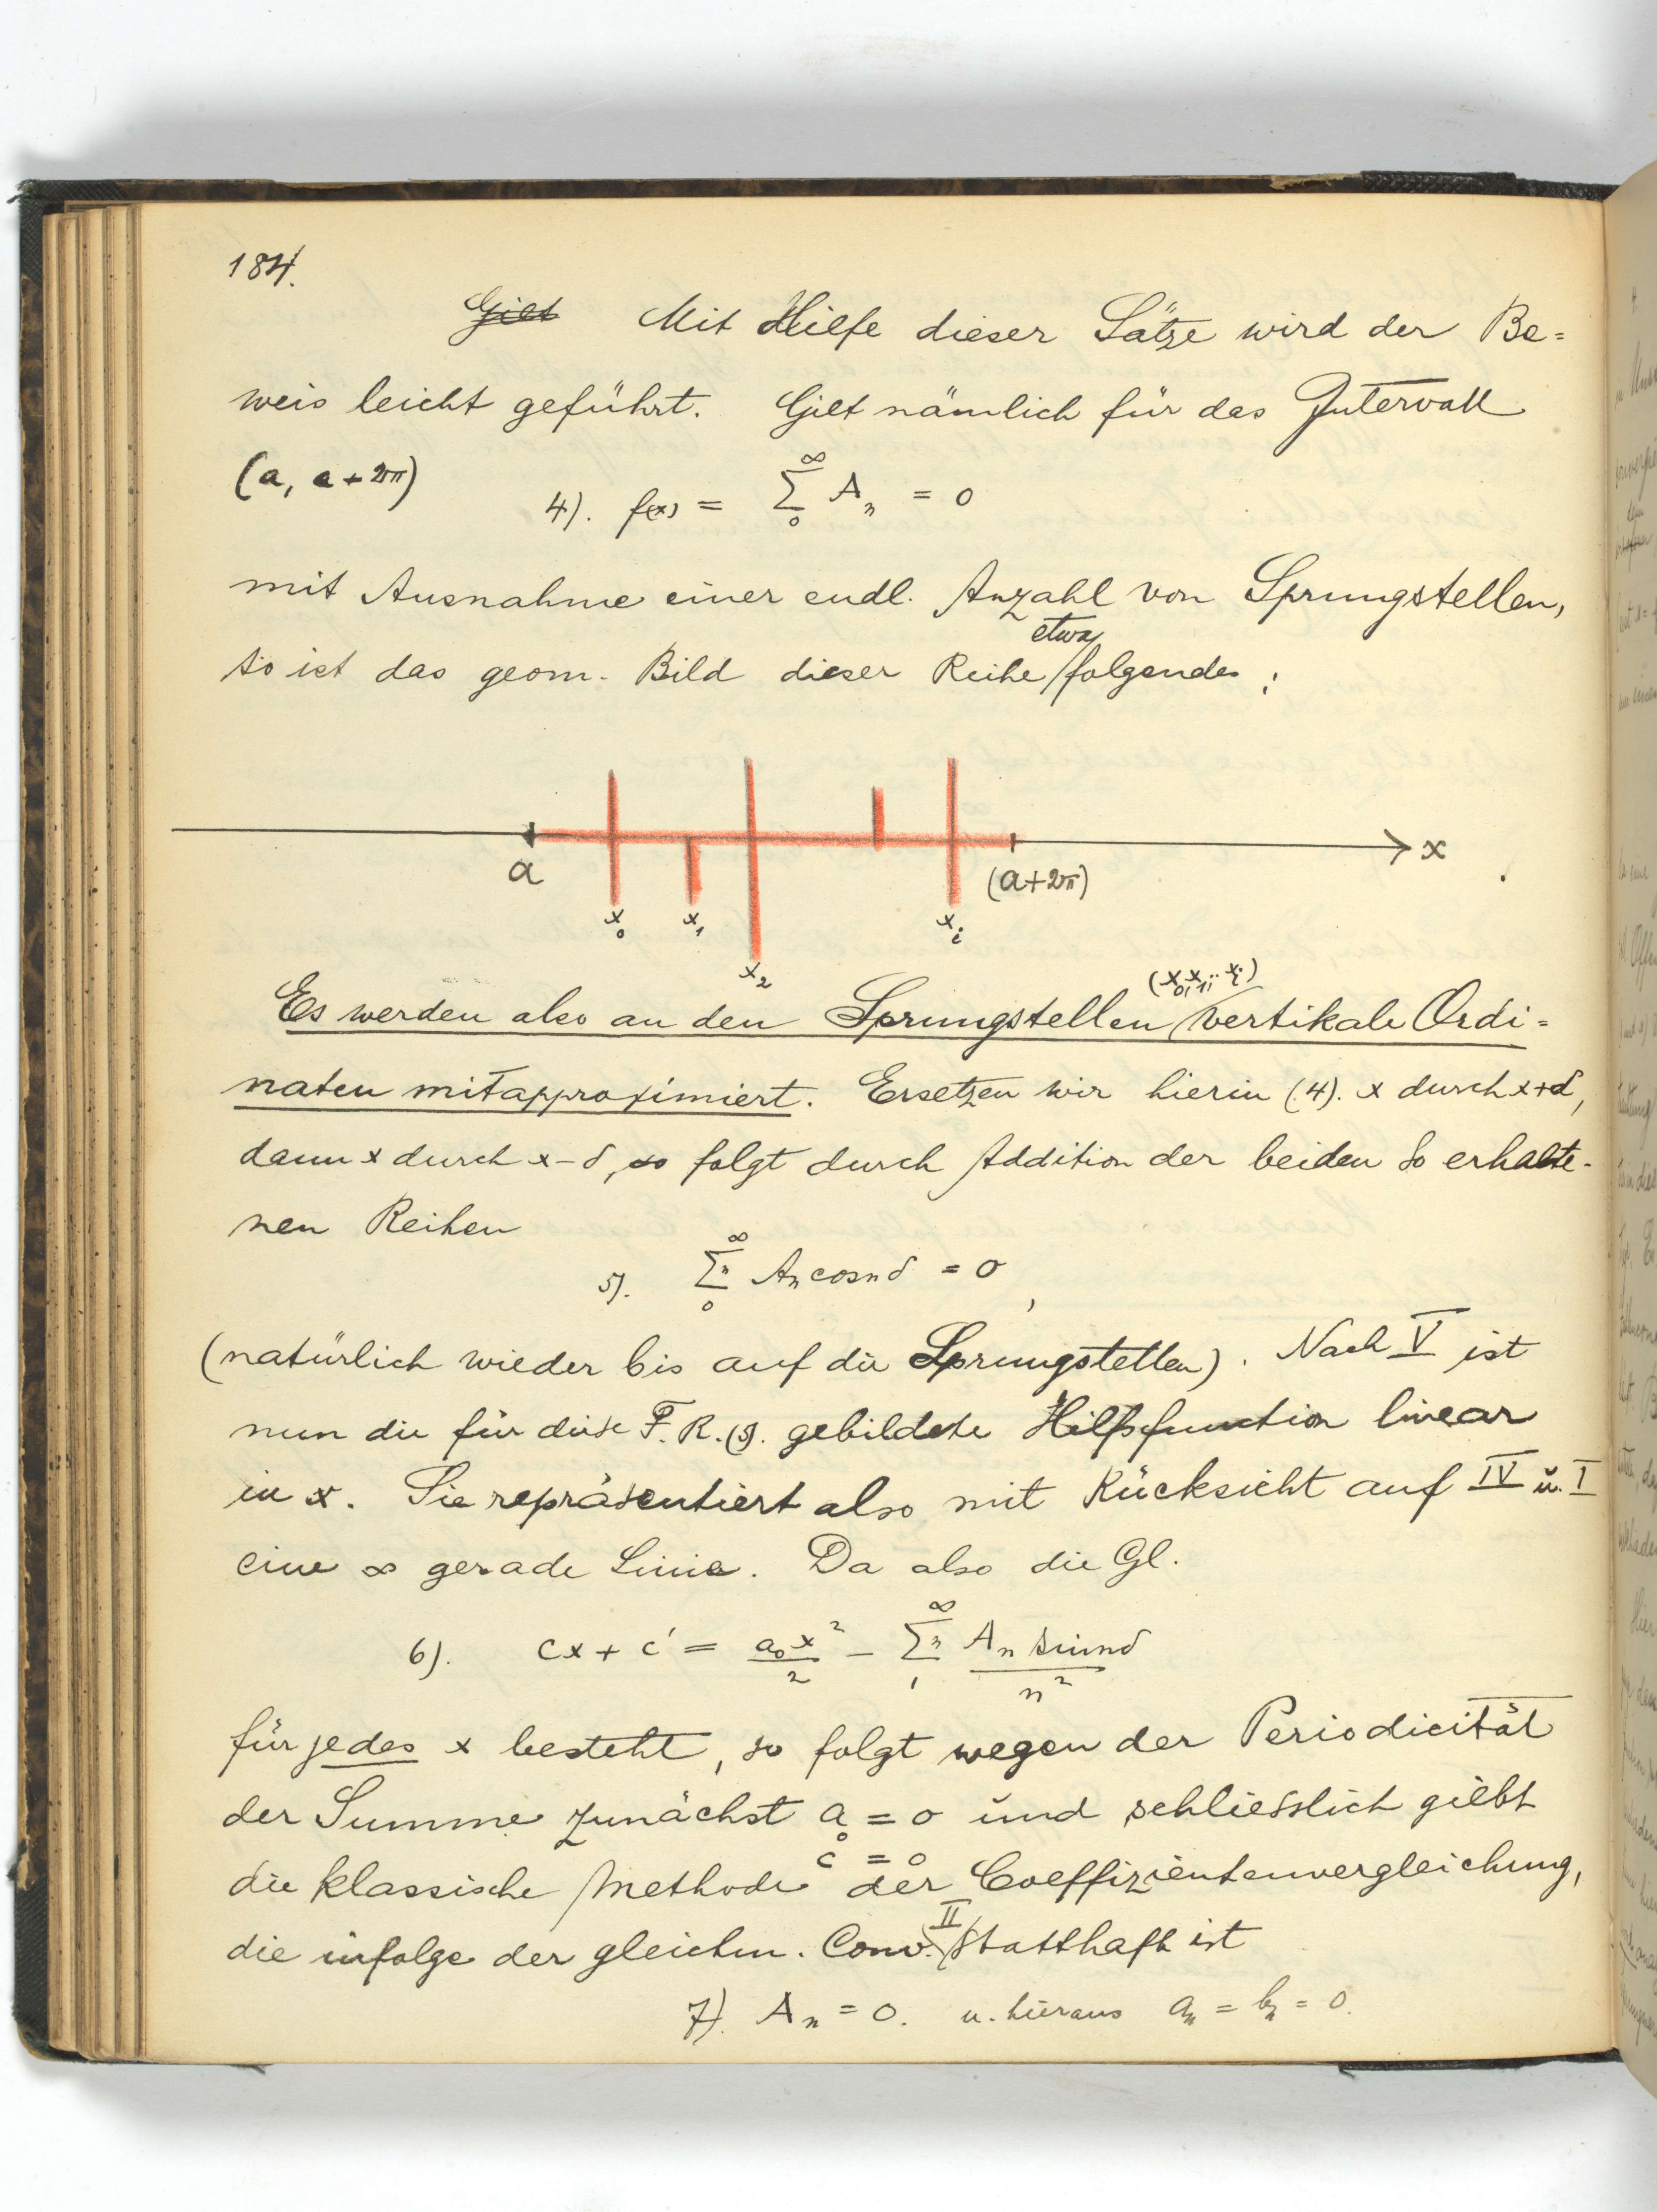 184.
Gilt Mit Hilfe dieser Sätze wird der Be=
weis leicht geführt. Gilt nämlich für das Intervall
(a, a+2π)
4). f(x) = ∑_0^∞ A_n = 0
mit Ausnahme einer endl. Anzahl von Sprungstellen,
so ist das geom. Bild dieser Reihe etwa folgendes:
a (a+2π) x
x_0 x_1 x_2 x_i
Es werden also an den Sprungstellen (x_0, x_1, .. x_i) vertikale Ordi=
naten mitapproximiert. Ersetzen wir hierin (4). x durch x+δ,
dann x durch x-δ, so folgt durch Addition der beiden so erhalte-
nen Reihen
5). ∑_0^∞ n A_n cos nδ = 0,
(natürlich wieder bis auf die Sprungstellen). Nach V ist
nun die für diese F. R. (5. gebildete Hilfsfunction linear
in x. Sie repräsentiert also mit Rücksicht auf IV u. I
eine ∞ gerade Linie. Da also die Gl.
6). cx + c' = a_0x²/2 - ∑_1^∞ n A_n sin nδ / n²
für jedes x besteht, so folgt wegen der Periodicität
der Summe zunächst a_0 = 0 und schliesslich giebt
c = 0
die klassische Methode der Coeffizientenvergleichung,
die infolge der gleichm. Conv. II statthaft ist
7). A_n = 0. u. hieraus a_n = b_n = 0.